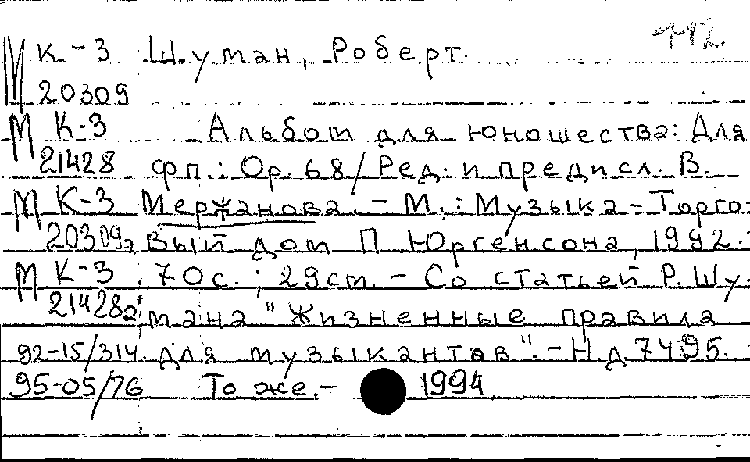 112.
М К-3 Шуман, Роберт
20309
М К-3 Альбом для юношества: Для
21428 фп.: Ор. 68/Ред. и предисл. В.
М К-3 Мержанова. - М.: Музыка - Торго-
20309а вый дом П. Юргенсона, 1992.-
М К-3 70с.; 29ст. - Со статьей Р. Шу-
21428а мана "Жизненные правила
92-15/314 для музыкантов". - Н.д. 7495.
95-05/76 То же. - 1994